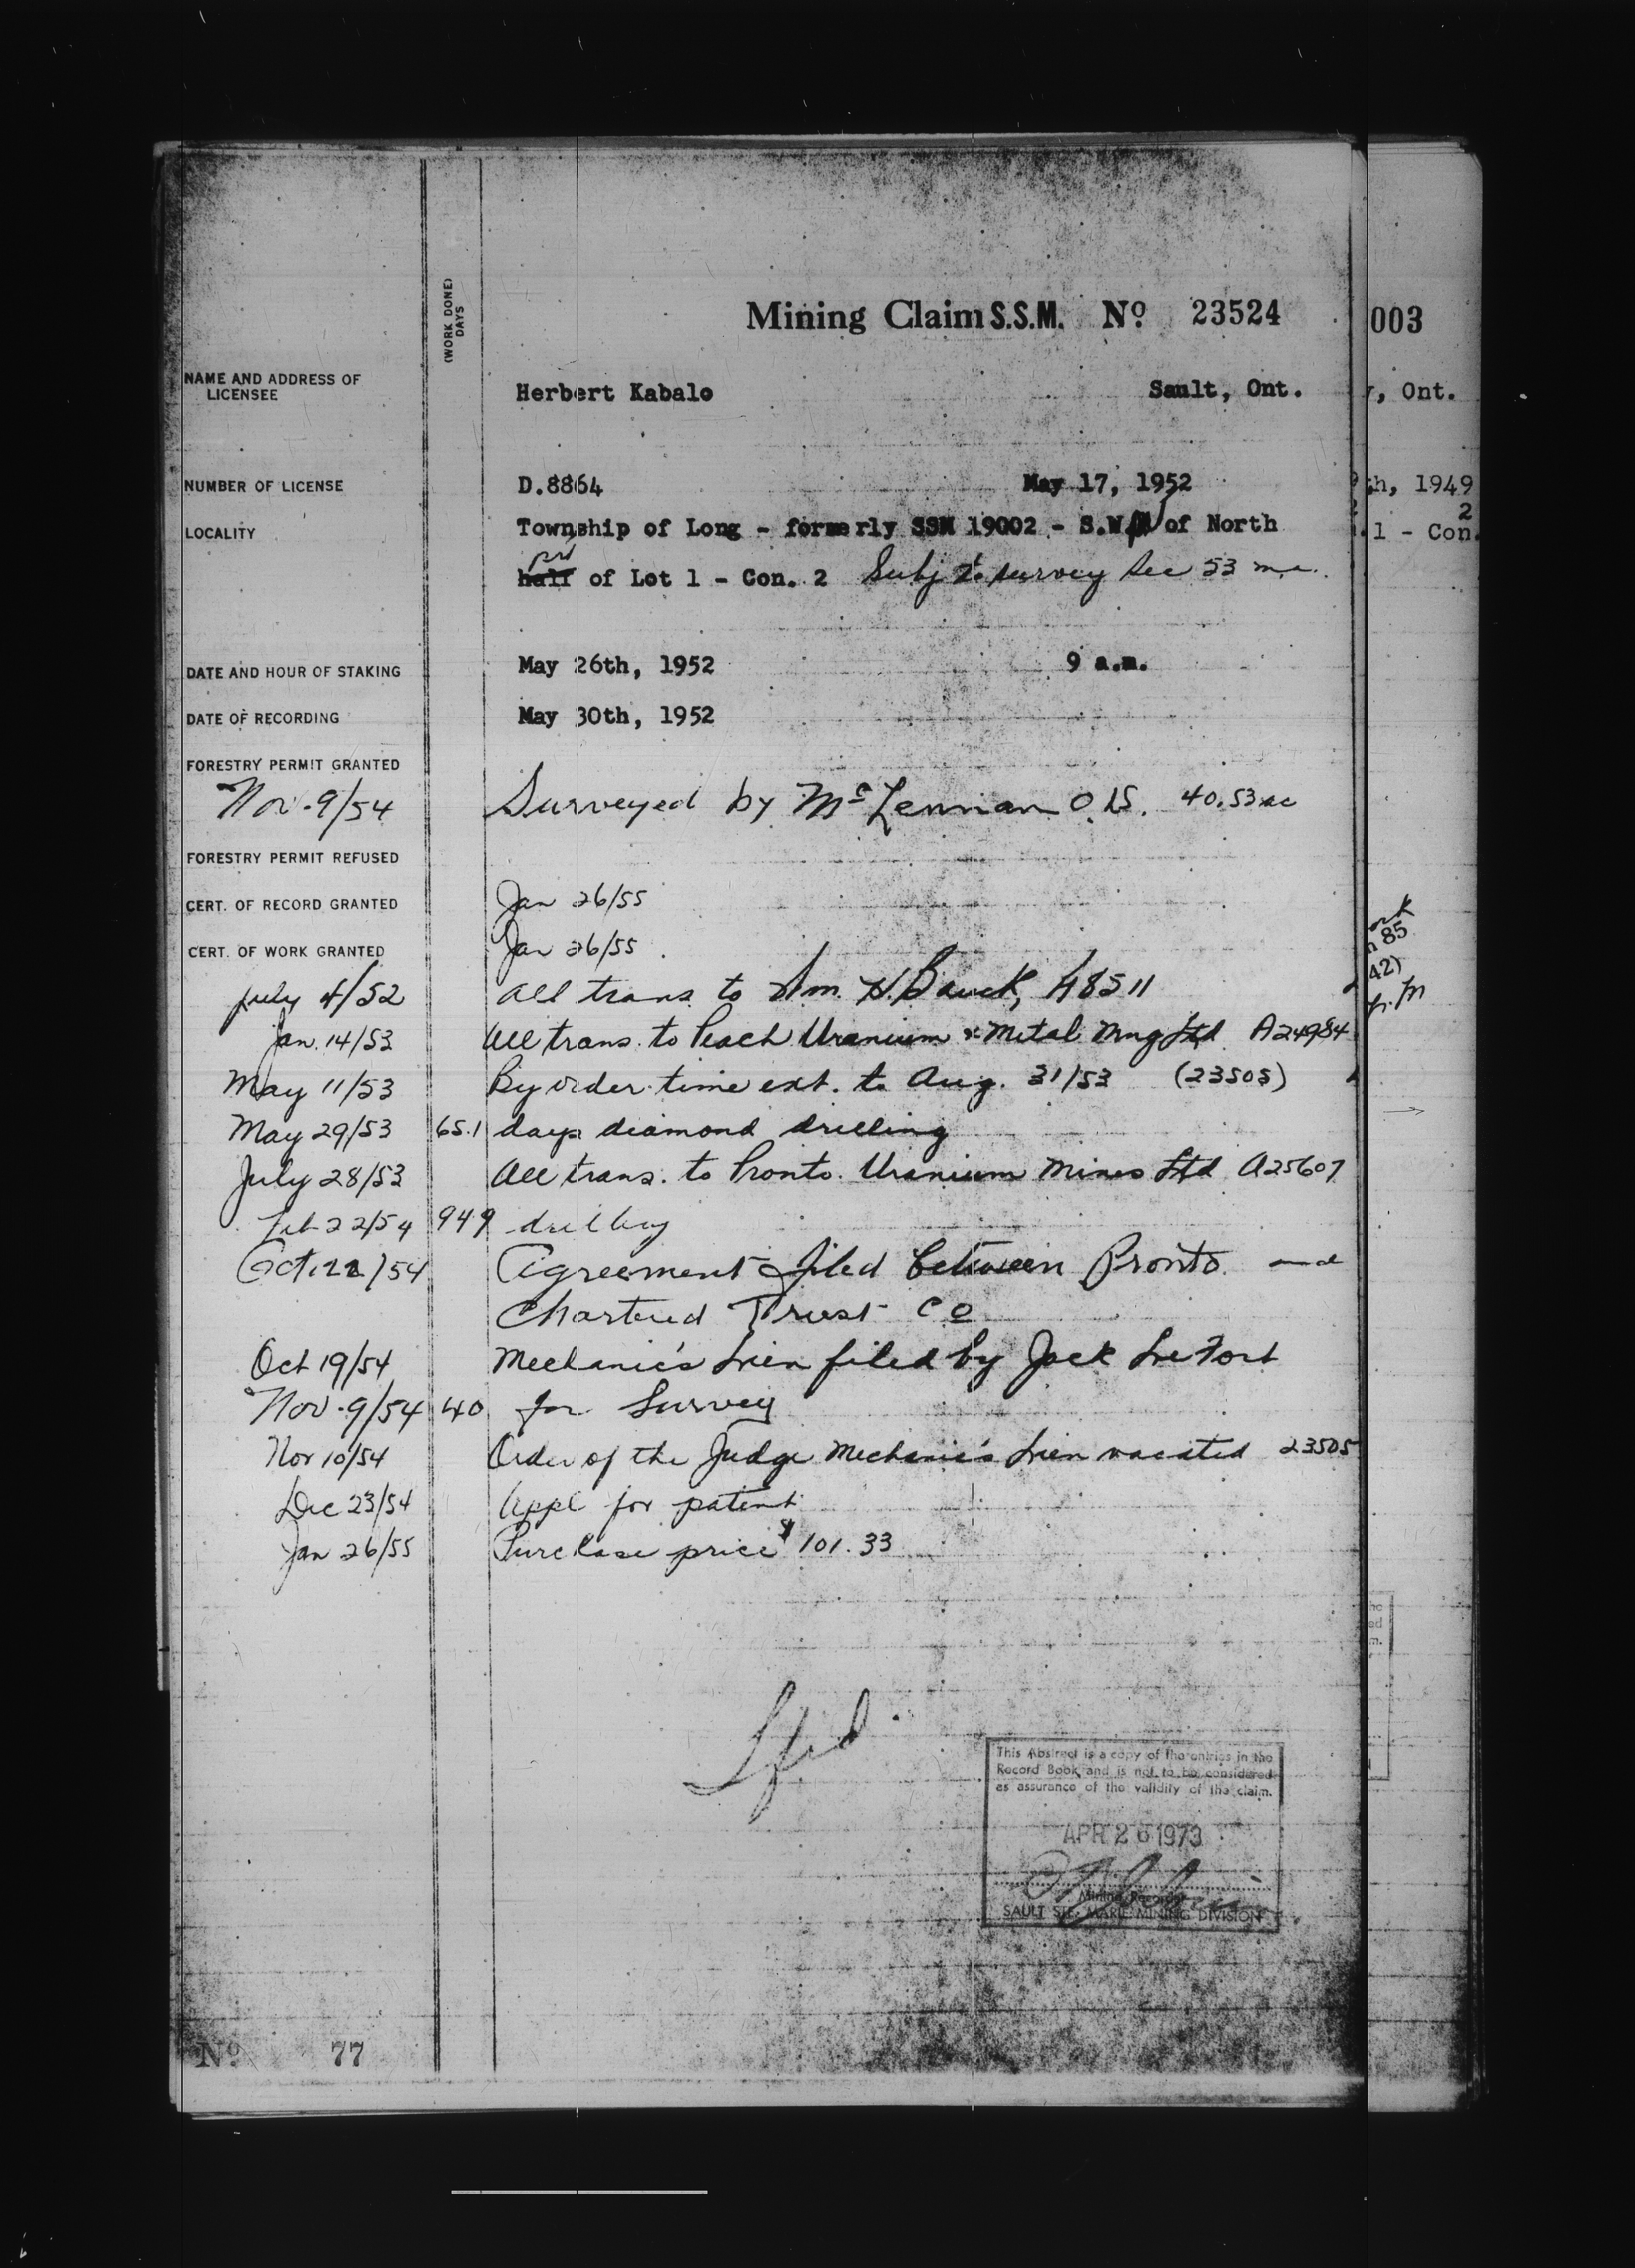 (WORK DONE)
DAYS
Mining Claim S.S.M. Nº 23524
003
NAME AND ADDRESS OF
LICENSEE
Herbert Kabalo Sault, Ont.
, Ont.
NUMBER OF LICENSE D.8864 May 17, 1952
h, 1949
2
LOCALITY Township of Long - formerly SSM 19002 - S.W. of North
1 - Con.
half of Lot 1 - Con. 2 Subj to survey Sec 53 m.a.
DATE AND HOUR OF STAKING May 26th, 1952 9 a.m.
DATE OF RECORDING May 30th, 1952
FORESTRY PERMIT GRANTED
Nov. 9/54 Surveyed by McLennan O.L.S. 40.53 ac
FORESTRY PERMIT REFUSED
CERT. OF RECORD GRANTED Jan 26/55
CERT. OF WORK GRANTED Jan 26/55
85
42)
July 4/52 All trans to Wm. H. Bauck, A8511
Jan. 14/53 All trans. to Peach Uranium & Metal Mng Ltd A24984
May 11/53 By order time ext. to Aug. 31/53 (23505)
May 29/53 65.1 days diamond drilling
July 28/53 All trans. to Pronto Uranium Mines Ltd A25607
Feb 22/54 949 drilling
Oct. 22/54 Agreement filed between Pronto and
Chartered Trust Co
Oct 19/54 Mechanic's Lien filed by Jack LeFort
Nov. 9/54 40 for Survey
Nov 10/54 Order of the Judge Mechanic's Lien vacated 23505
Dec 23/54 Appl for patent
Jan 26/55 Purchase price $101.33
This Abstract is a copy of the entries in the
Record Book and is not to be considered
as assurance of the validity of the claim.
APR 26 1973
Mining Recorder
SAULT STE. MARIE MINING DIVISION
Nº 77